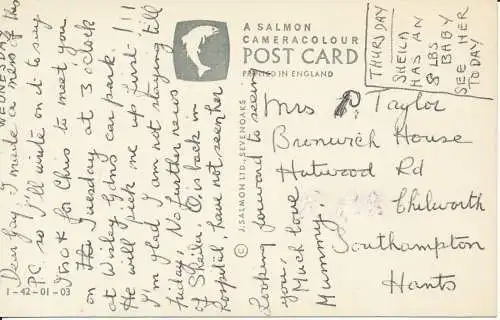 WEDNESDAY
Dear Gay, I made a mess of this
P.C. so I'll write on it to say
for Chris to meet you
on the Tuesday at 3 o'clock
at Wisley Gdns car park.
He will pick me up first!!!
I'm glad I am not staying till
friday. No further news
of Sheila, O. is back in
hospital, have not seen her
Looking forward to seeing
you,
Much love
Mummy.
1-42-01-03
© J. SALMON LTD., SEVENOAKS
A SALMON
CAMERACOLOUR
POST CARD
PRINTED IN ENGLAND
THURSDAY
SHEILA
HAS AN
8 LBS
BABY
SEE HER
TODAY
Mrs P. Taylor
House
Rd
Chilworth
Southampton
Hants